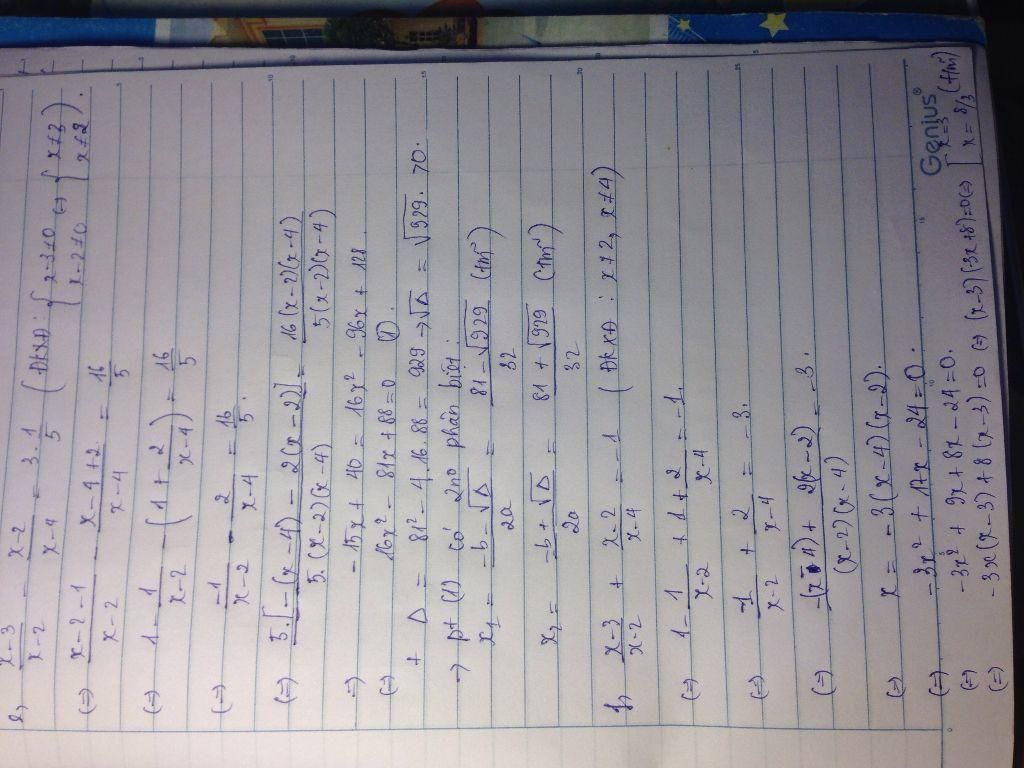 e, x-3/x-2 - x-2/x-4 = 3.1/5 (ĐKXĐ: { x-3≠0 x-2≠0 (=) { x≠3 x≠2 ).
(=) x-2-1/x-2 - x-4+2/x-4 = 16/5
(=) 1 - 1/x-2 - (1 + 2/x-4) = 16/5
(=) -1/x-2 - 2/x-4 = 16/5.
(=) 5.[-(x-4) - 2(x-2)]/5.(x-2)(x-4) = 16(x-2)(x-4)/5(x-2)(x-4)
=) -15x + 40 = 16x² - 96x + 128
(=) 16x² - 81x + 88 = 0 (1).
+ Δ = 81² - 4.16.88 = 929 → √Δ = √929. 70.
→ pt (1) có 2n⁰ phân biệt:
x₁ = -b-√Δ/2a = 81-√929/32 (tm)
x₂ = -b+√Δ/2a = 81+√929/32 (tm)
f, x-3/x-2 + x-2/x-4 = -1 (ĐKXĐ: x≠2, x≠4)
(=) 1 - 1/x-2 + 1 + 2/x-4 = -1.
(=) -1/x-2 + 2/x-4 = -3.
(=) -(x-4) + 2(x-2)/(x-2)(x-4) = -3.
(=) x = -3(x-4)(x-2).
(=) -3x² + 17x - 24 = 0.
(=) -3x² + 9x + 8x - 24 = 0.
(=) -3x(x-3) + 8(x-3) = 0 (=) (x-3)(-3x+8)=0 (=) [ x=3 x = 8/3 (tm)
Genius®